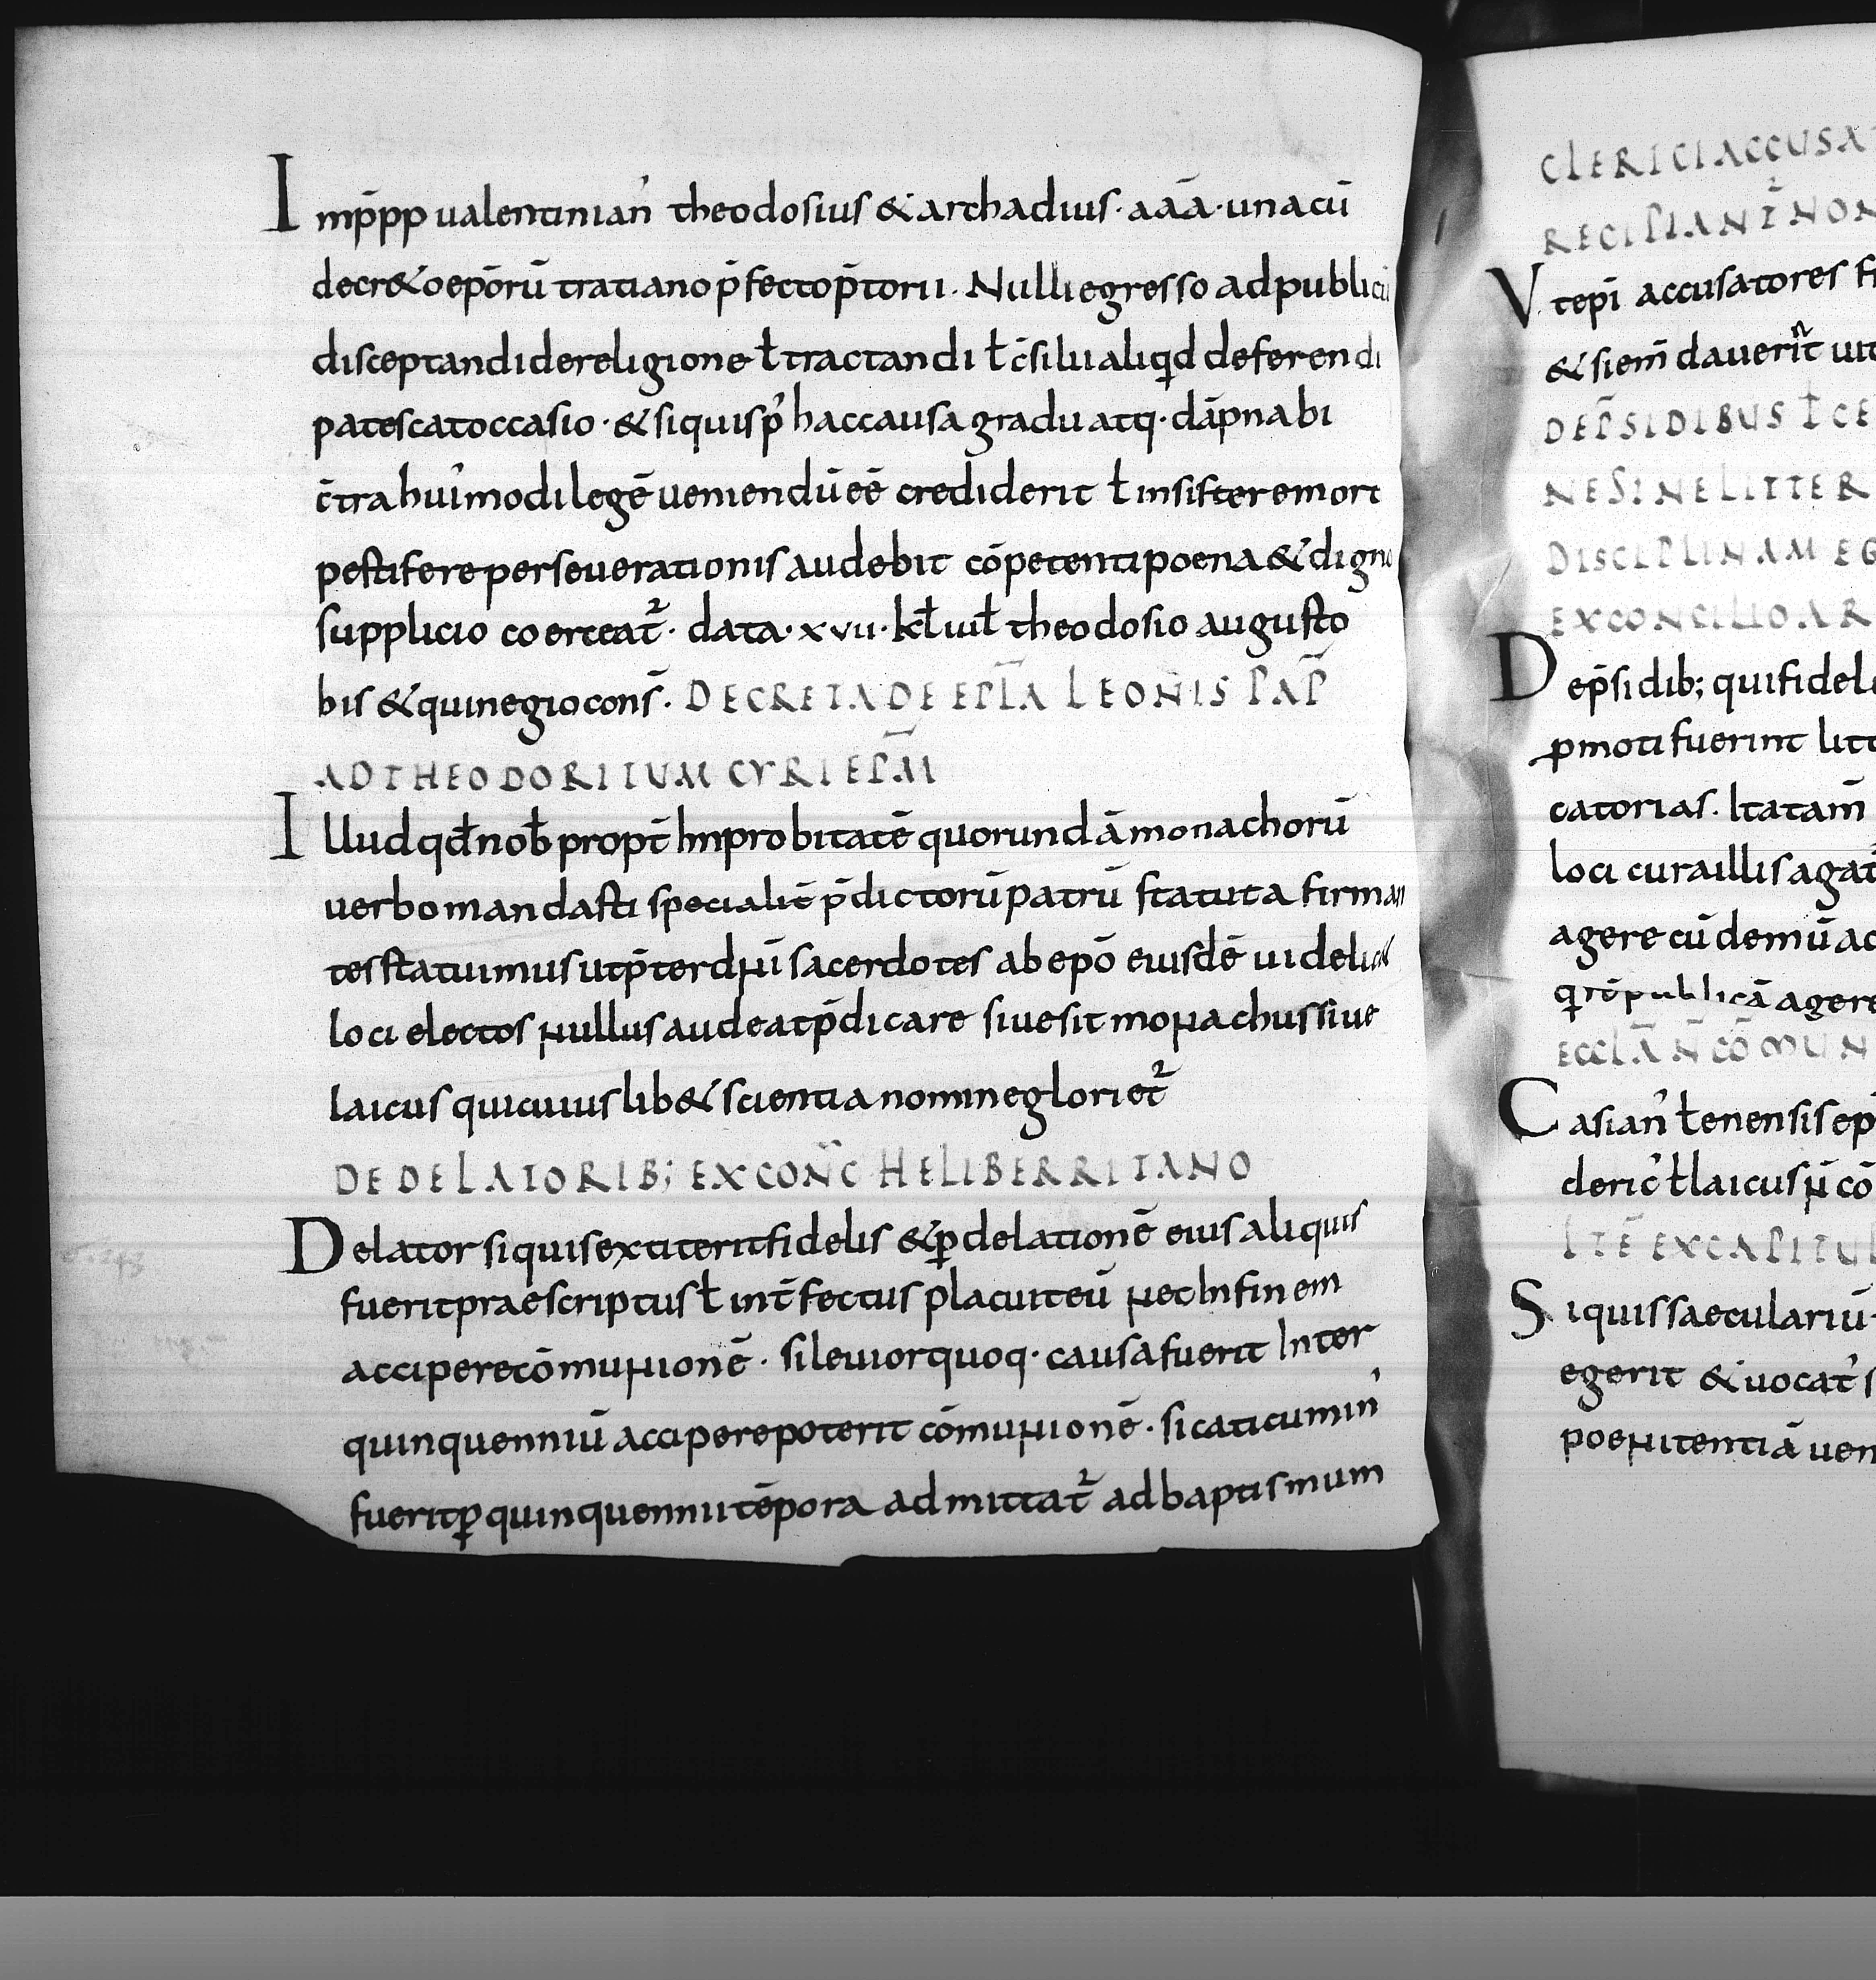 Imp̄ppualentinian̓ theodosius &archadius·aāā·unacū
decr&oep̄orū tratiano p̄fectop̄torii. Nulliegresso adpublicū
disceptandidereligione ł tractandi ł c̄siluialiqd deferendi
patescatoccasio·&siquisp̓ haccausa graduatq·dāpnabi
c̄trahui̓modilegē ueniendūeē crediderit ł insisteremort
pestifereperseuerationisaudebit cōpetentipoena&digno
supplicio coerceat̄²· data·xvii·kł iuł theodosio augusto
bis &quinegiocons̄. DECRETADE EPL̄A LEONIS PAP̄
ADTHEODORITUM CYRI EPM̄
Illudqđnoƀ propt̄ Inprobitatē quorundā monachorū
uerbomandasti specialit̄ p̄dictorūpatrū statuta firman
tesstatuimusutp̄terdn̄i sacerdotes abepō eiusdē uidelic&
loci electos nullusaudeatp̄dicare siuesit monachussiue
laicus quicuiuslib&scientianominegloriet̄²
DEDELATORIB; EXCONC̄ HELIBERRITANO
Delatorsiquisextiteritfidelis &ꝑdelationē eiusaliquis
fueritpraescriptus ł int̄fectus placuiteū necInfinem
acciperecōmunionē· sileuiorquoq·causafuerit Inter
quinquenniū acciperepoterit cōmunionē· sicaticumin̓
fueritꝑquinquenniitēpora admittat̄² adbaptismum
CLERICIACCUSA
RECIPIANT̄²NON
Vtepi̅ accusatores
&siem̄dauerin̄t
DEP̄SIDIBUS ł CE
NESINELITTER
DISCIPLINAM EG
EXCONCILIOAR
Dep̄sidib; quifidele
ꝑmotifuerint litt
catorias. Itatam̄
loci curaillisagat̄
agerecū demūac
qrēpublicāagere
ECCLĀ N̄ COMUN
Casian̓ łenensisep
deric̓ łlaicus n̄ cō
ITĒ EXCAPITUL
Siquissaeculariū
egerit &uocat̓
poenitentiāuen